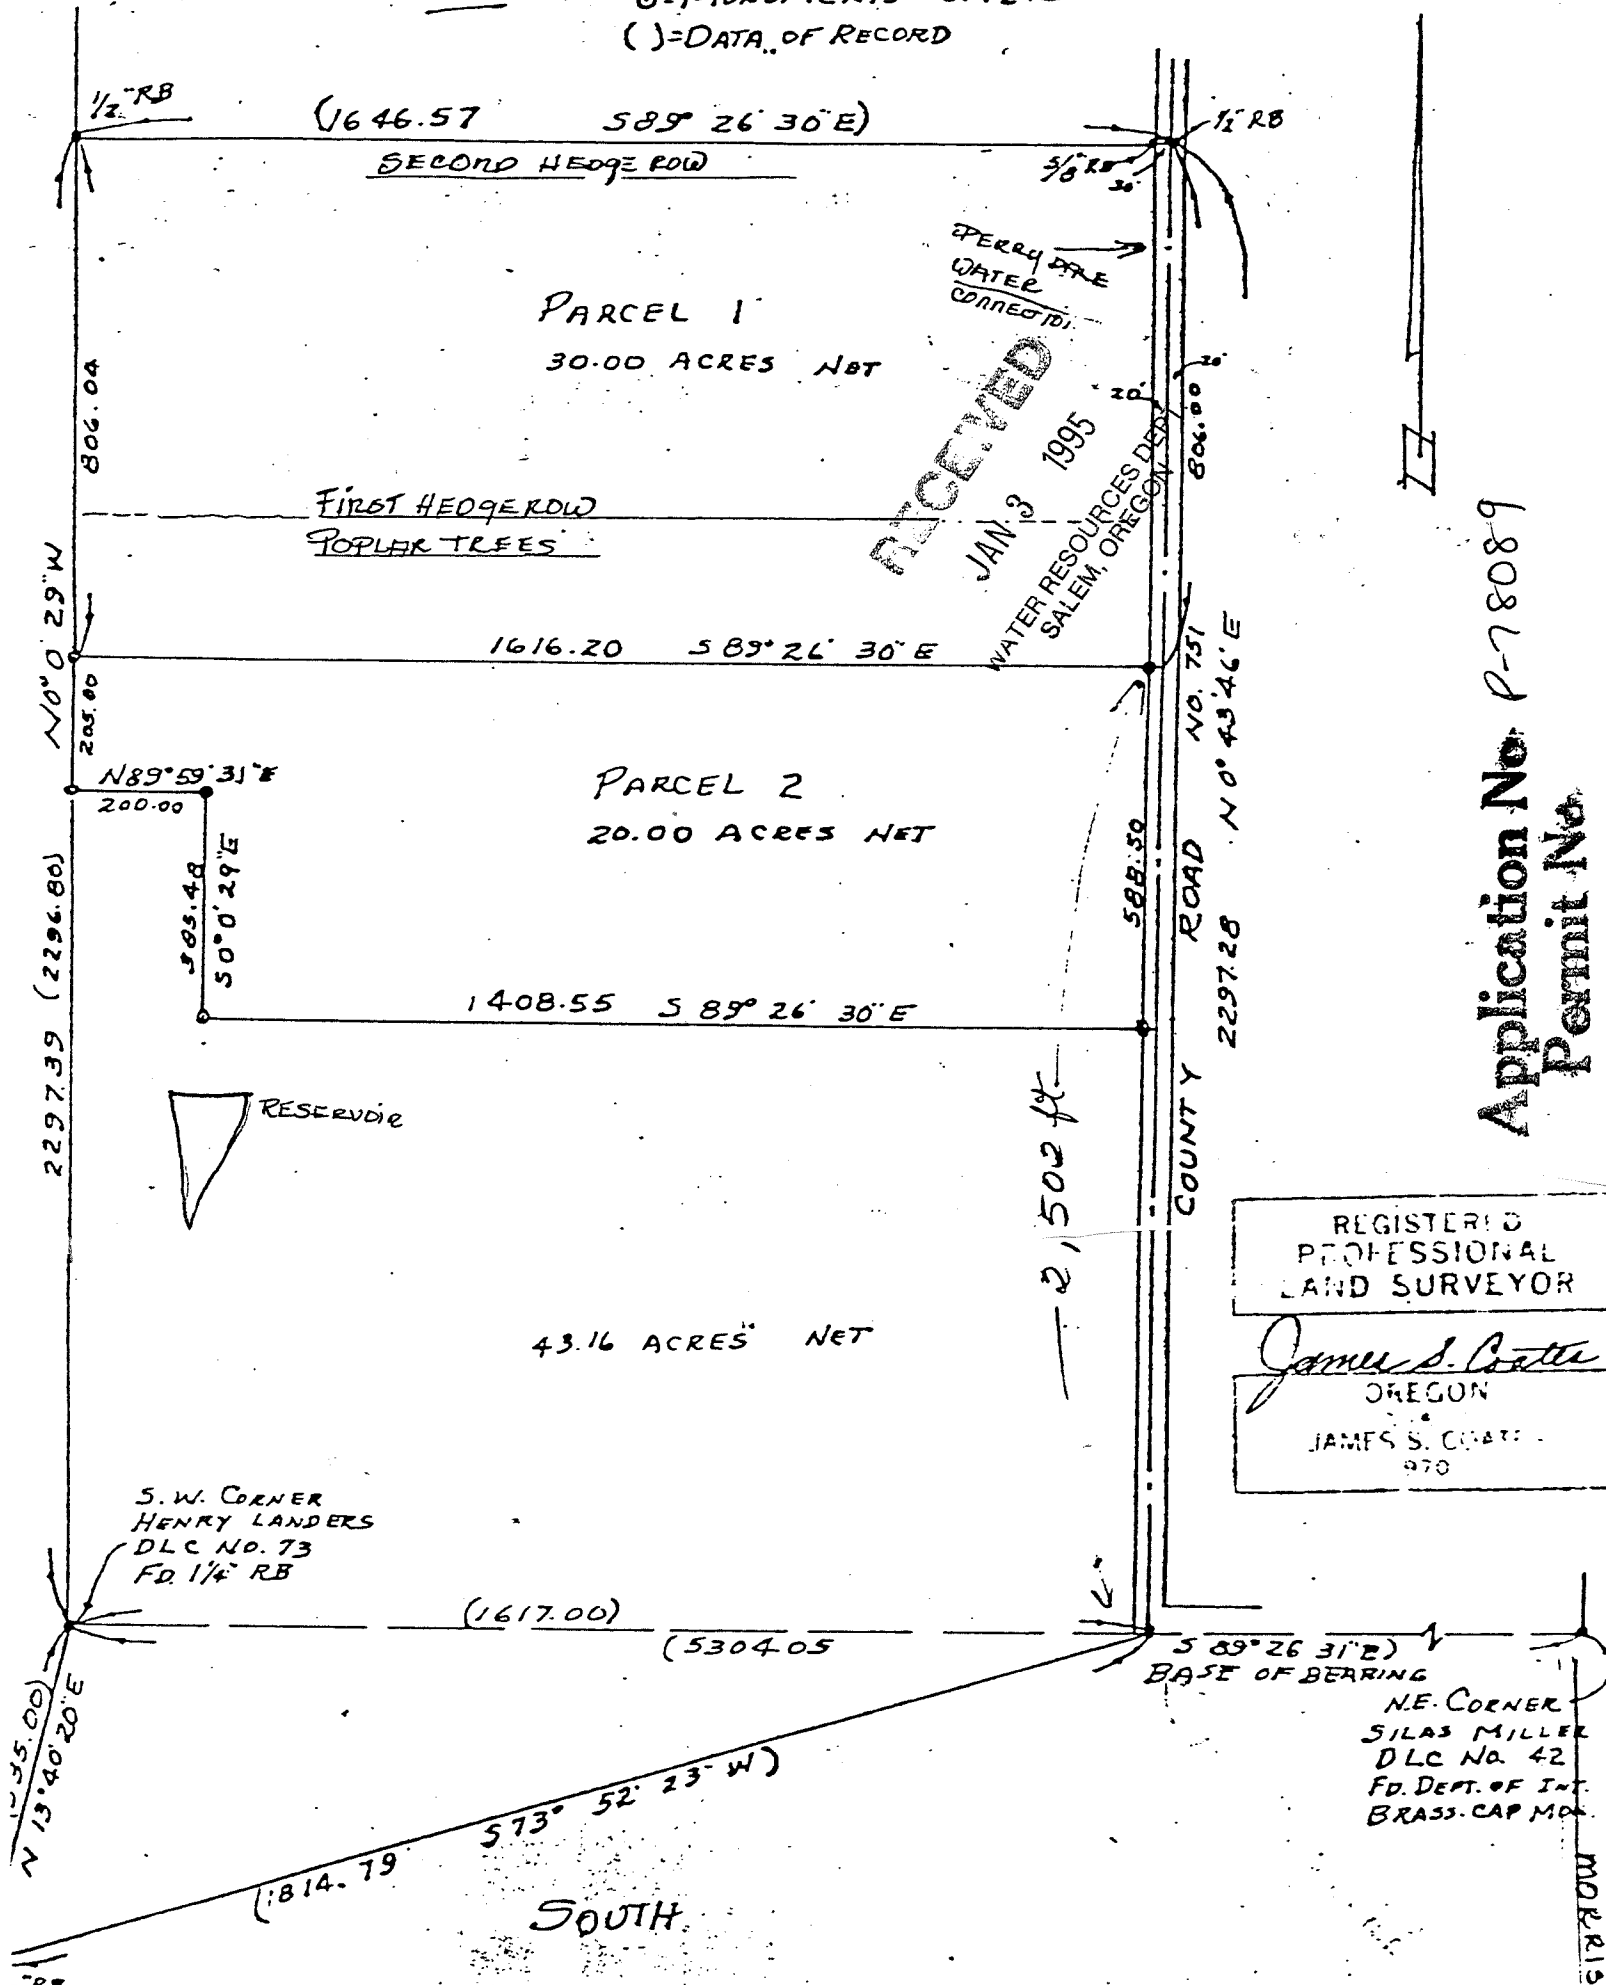 ( )=DATA OF RECORD
1/2" RB
(1646.57 S89° 26' 30"E)
1/2" RB
SECOND HEDGE ROW
5/8" RB
30'
PERRY DALE
WATER
PARCEL 1
30.00 ACRES NET
806.04
20'
20'
806.00
RECEIVED
JAN 3 1995
WATER RESOURCES DEPT
SALEM, OREGON
FIRST HEDGEROW
POPLAR TREES
N0° 0' 29"W
1616.20 S 89° 26' 30" E
205.00
N89°59'31"E
200.00
PARCEL 2
20.00 ACRES NET
303.48
S0°0'29"E
588.50
COUNTY ROAD NO. 751
2297.28 N0° 43' 46" E
1408.55 S 89° 26' 30" E
2297.39 (2296.80)
RESERVOIR
2,502 ft
43.16 ACRES NET
Application No. P-78089
Permit No.
REGISTERED
PROFESSIONAL
LAND SURVEYOR
James S. Coates
OREGON
JAMES S. COATE
970
S.W. CORNER
HENRY LANDERS
DLC NO. 73
FD. 1 1/4" RB
(1617.00)
(5304.05 S 89° 26' 31"E)
BASE OF BEARING
N.E. CORNER
SILAS MILLER
DLC No. 42
FD. DEPT. OF INT.
BRASS. CAP MON.
35.00)
N 13° 40' 20" E
814.79 S73° 52' 23" W)
SOUTH
MORRIS